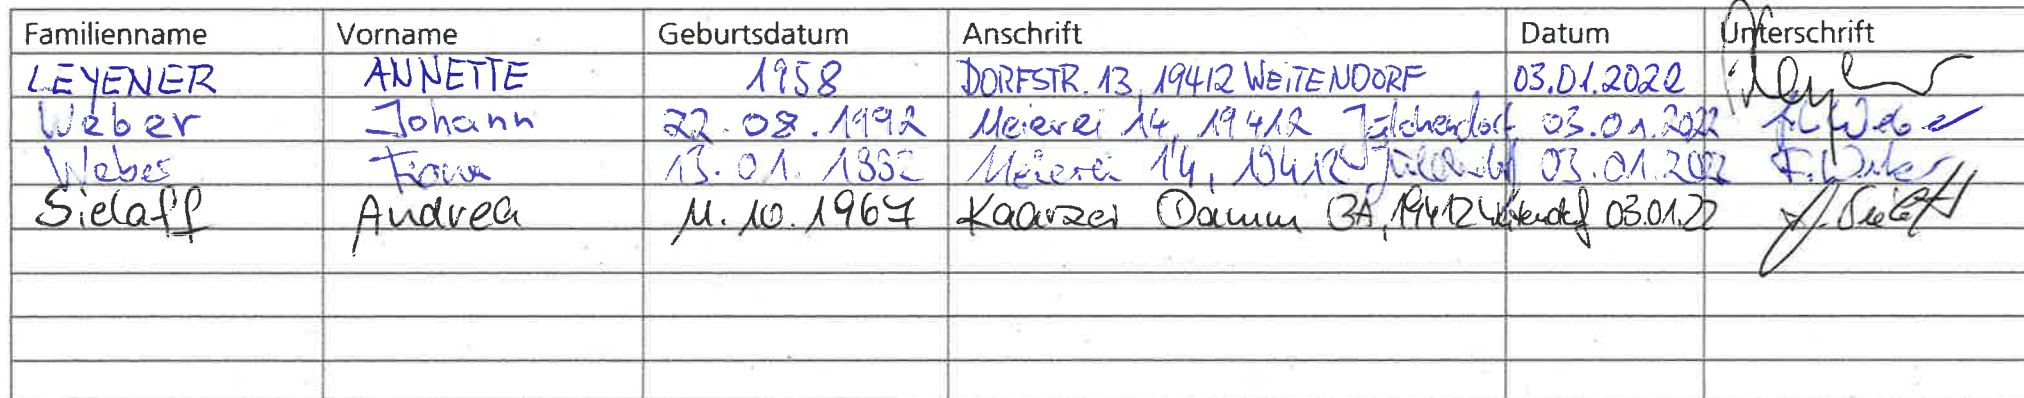 Familienname Vorname Geburtsdatum Anschrift Datum Unterschrift
LEYENER ANNETTE 1958 DORFSTR. 13, 19412 WEITENDORF 03.01.2022
Weber Johann 22.08.1992 Meierei 14, 19412 Jülchendorf 03.01.2022 Weber
Weber 13.01. Meierei 14, 19412 03.01.2022 F. Weber
Sielaff Andrea 11.10.1967 Kaarzer Damm 3A, 19412 Weitendorf 03.01.22 A. Sielaff